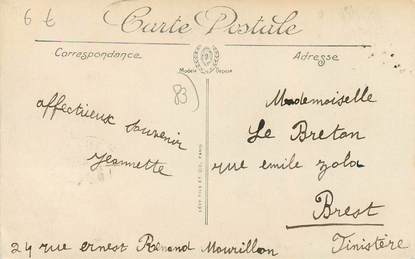 6 €
Carte Postale
Correspondance
Adresse
Modèle Déposé
83
affectueux souvenir
Jeannette
LÉVY FILS ET CIE, PARIS
Mademoiselle
Le Breton
rue emile zola
Brest
Finistère
24 rue ernest Renand Mourillon